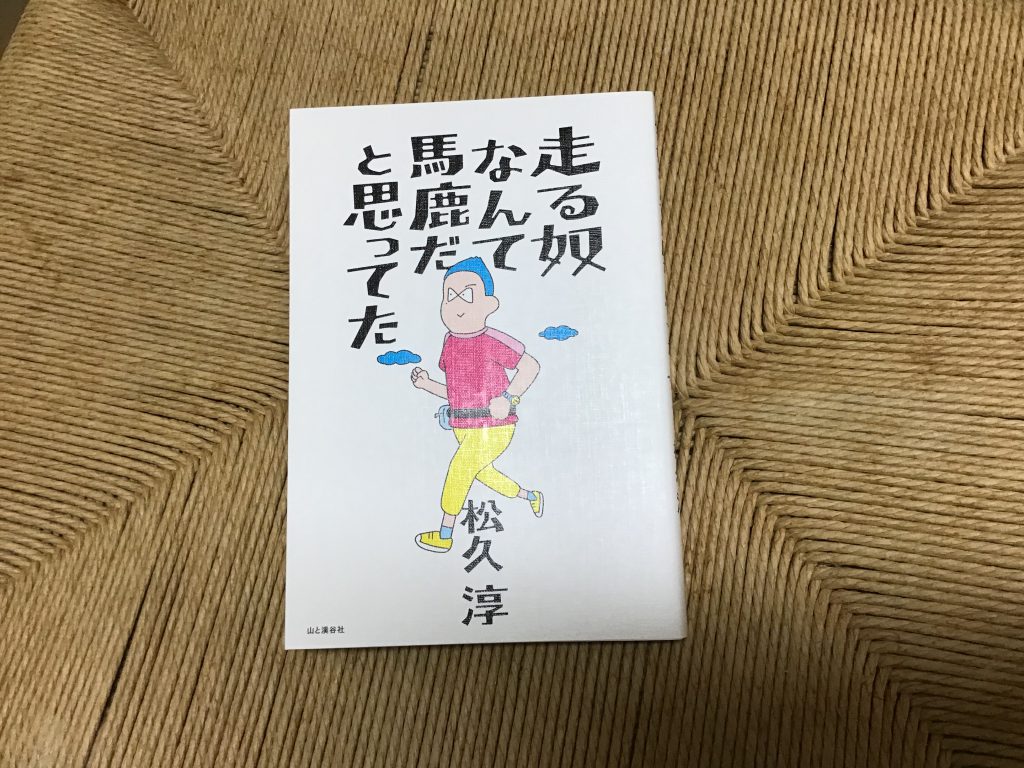 走る奴
なんて
馬鹿だ
と思ってた
松久淳
山と溪谷社